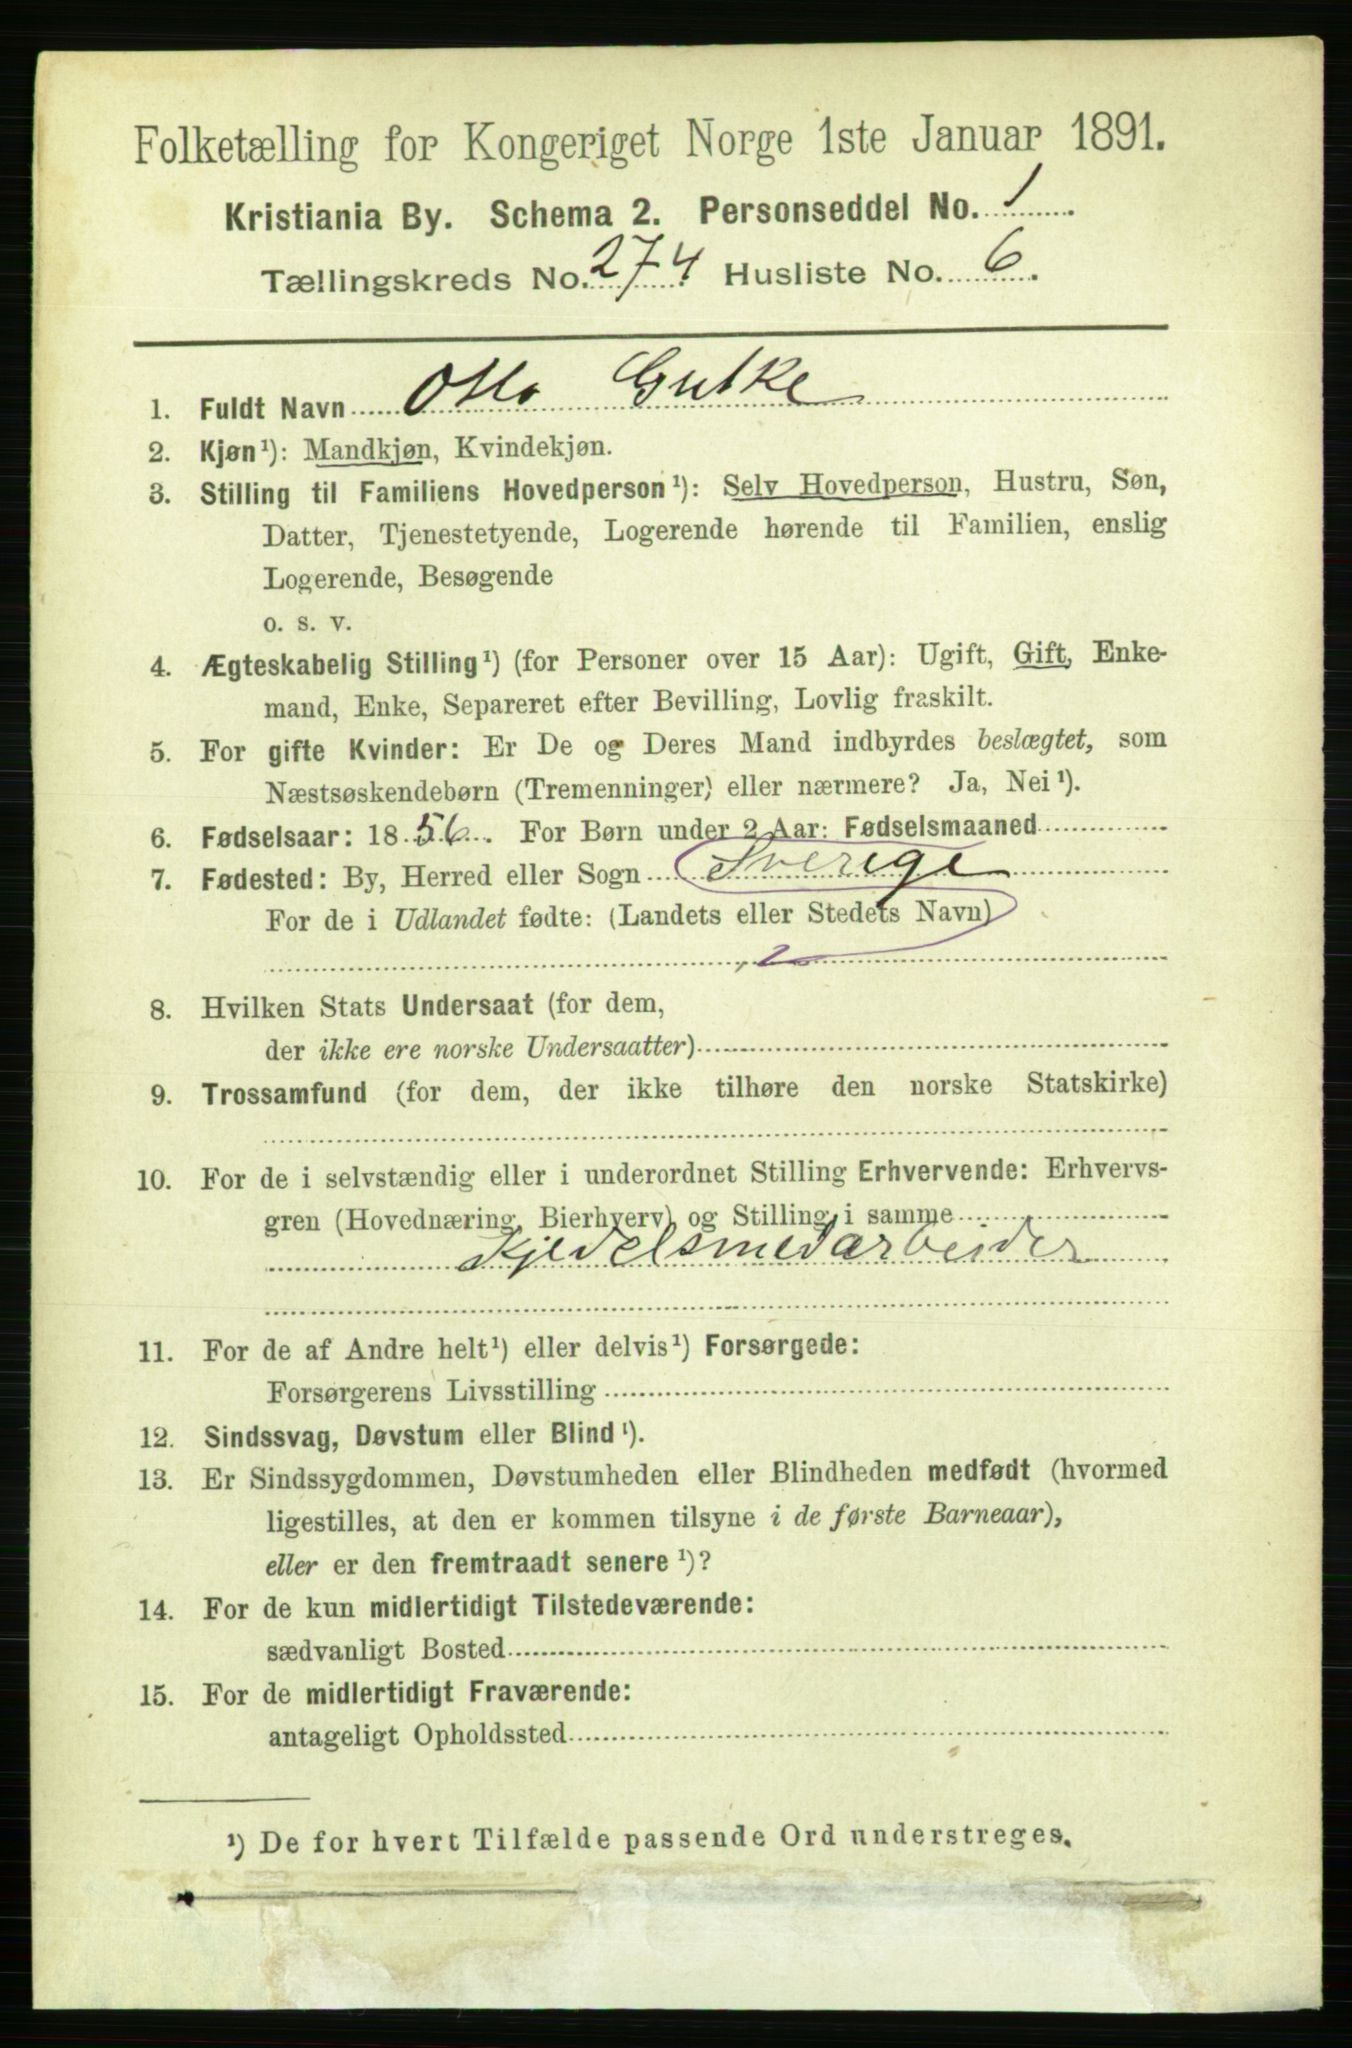 Folketælling for Kongeriget Norge 1ste Januar 1891.
Kristiania By. Schema 2. Personseddel No. 1
Tællingskreds No. 274 Husliste No. 6.
1. Fuldt Navn Otto Gutke
2. Kjøn¹): Mandkjøn, Kvindekjøn.
3. Stilling til Familiens Hovedperson¹): Selv Hovedperson, Hustru, Søn,
Datter, Tjenestetyende, Logerende hørende til Familien, enslig
Logerende, Besøgende
o. s. v.
4. Ægteskabelig Stilling¹) (for Personer over 15 Aar): Ugift, Gift, Enke-
mand, Enke, Separeret efter Bevilling, Lovlig fraskilt.
5. For gifte Kvinder: Er De og Deres Mand indbyrdes beslægtet, som
Næstsøskendebørn (Tremenninger) eller nærmere? Ja, Nei¹).
6. Fødselsaar: 1856. For Børn under 2 Aar: Fødselsmaaned
7. Fødested: By, Herred eller Sogn Sverige
For de i Udlandet fødte: (Landets eller Stedets Navn)
8. Hvilken Stats Undersaat (for dem,
der ikke ere norske Undersaatter)
9. Trossamfund (for dem, der ikke tilhøre den norske Statskirke)
10. For de i selvstændig eller i underordnet Stilling Erhvervende: Erhvervs-
gren (Hovednæring, Bierhverv) og Stilling i samme
Kjedelsmedarbeider
11. For de af Andre helt¹) eller delvis¹) Forsørgede:
Forsørgerens Livsstilling
12. Sindssvag, Døvstum eller Blind¹).
13. Er Sindssygdommen, Døvstumheden eller Blindheden medfødt (hvormed
ligestilles, at den er kommen tilsyne i de første Barneaar),
eller er den fremtraadt senere¹)?
14. For de kun midlertidigt Tilstedeværende:
sædvanligt Bosted
15. For de midlertidigt Fraværende:
antageligt Opholdssted
¹) De for hvert Tilfælde passende Ord understreges.